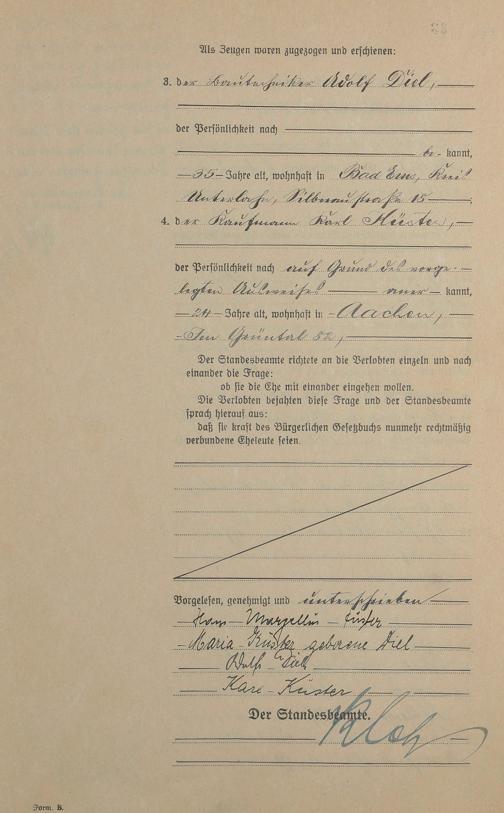 Als Zeugen waren zugezogen und erschienen:
3. der Bautechniker Adolf Diel,
der Persönlichkeit nach
be- kannt,
55 Jahre alt, wohnhaft in Bad Ems, Kreis
Unterlahn, Silbnaustraße 15
4. der Kaufmann Karl Küster,
der Persönlichkeit nach auf Grund des vorge-
legten Ausweises aner- kannt,
24 Jahre alt, wohnhaft in Aachen,
Im Grüntal 52,
Der Standesbeamte richtete an die Verlobten einzeln und nach
einander die Frage:
ob sie die Ehe mit einander eingehen wollen.
Die Verlobten bejahten diese Frage und der Standesbeamte
sprach hierauf aus:
daß sie kraft des Bürgerlichen Gesetzbuchs nunmehr rechtmäßig
verbundene Eheleute seien.
Vorgelesen, genehmigt und unterschrieben
Hans Marzellus Küster
Maria Küster geborene Diel
Adolf Diel
Karl Küster
Der Standesbeamte.
Form. B.